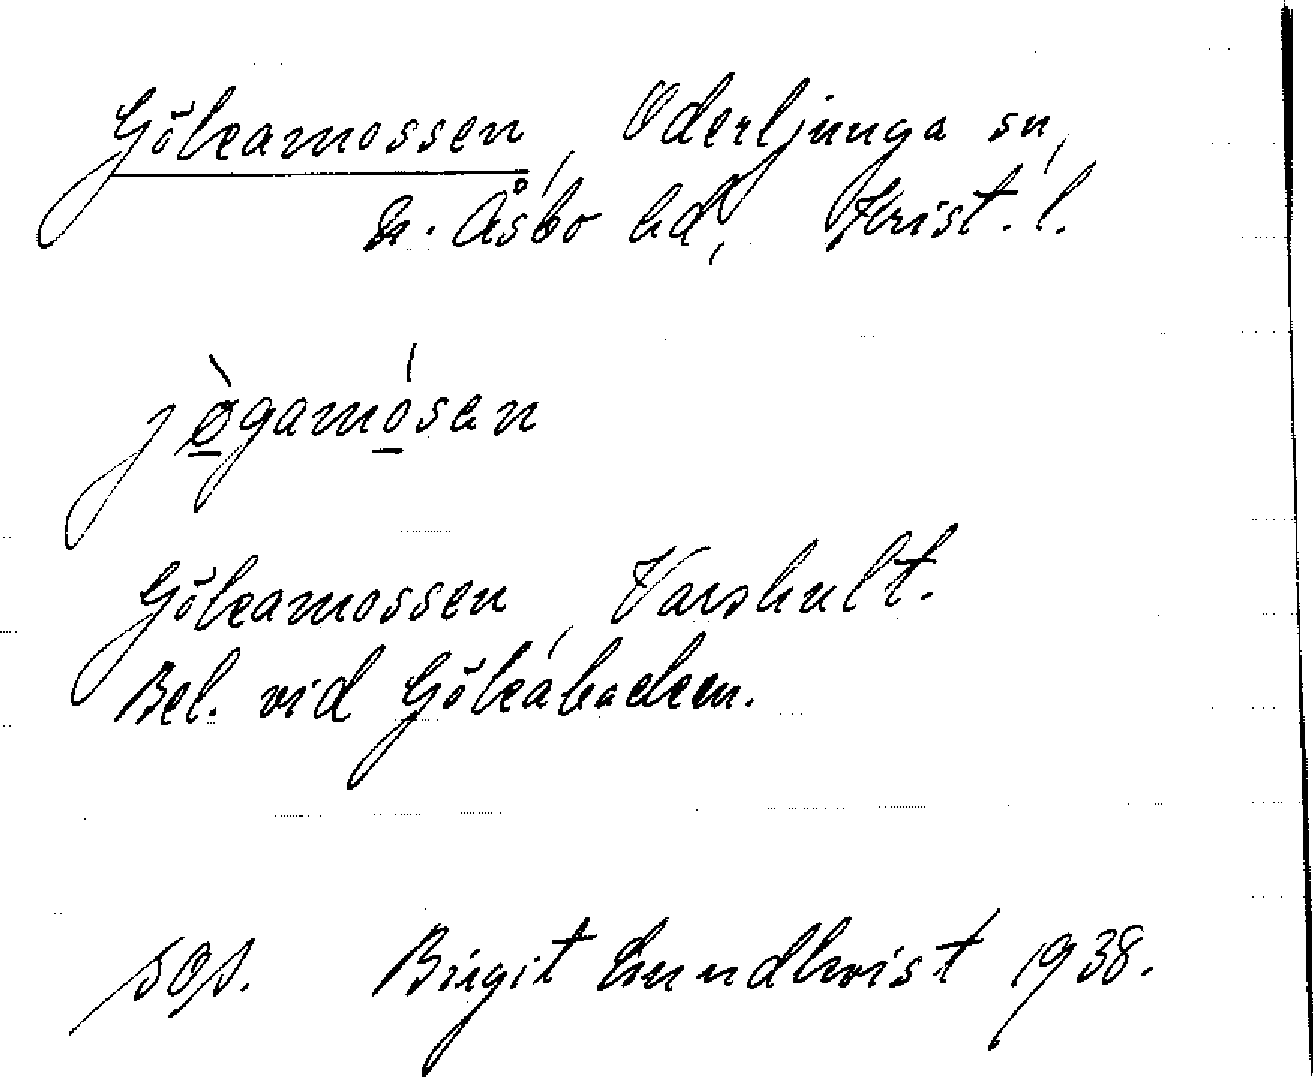 Gökamossen, Oderljunga sn,
N. Åsbo hd, Krist. l.
jø̀gamósan
Gökamossen, Varshult.
Bel. vid Gökabacken.
sop. Birgit Lundkvist 1938.